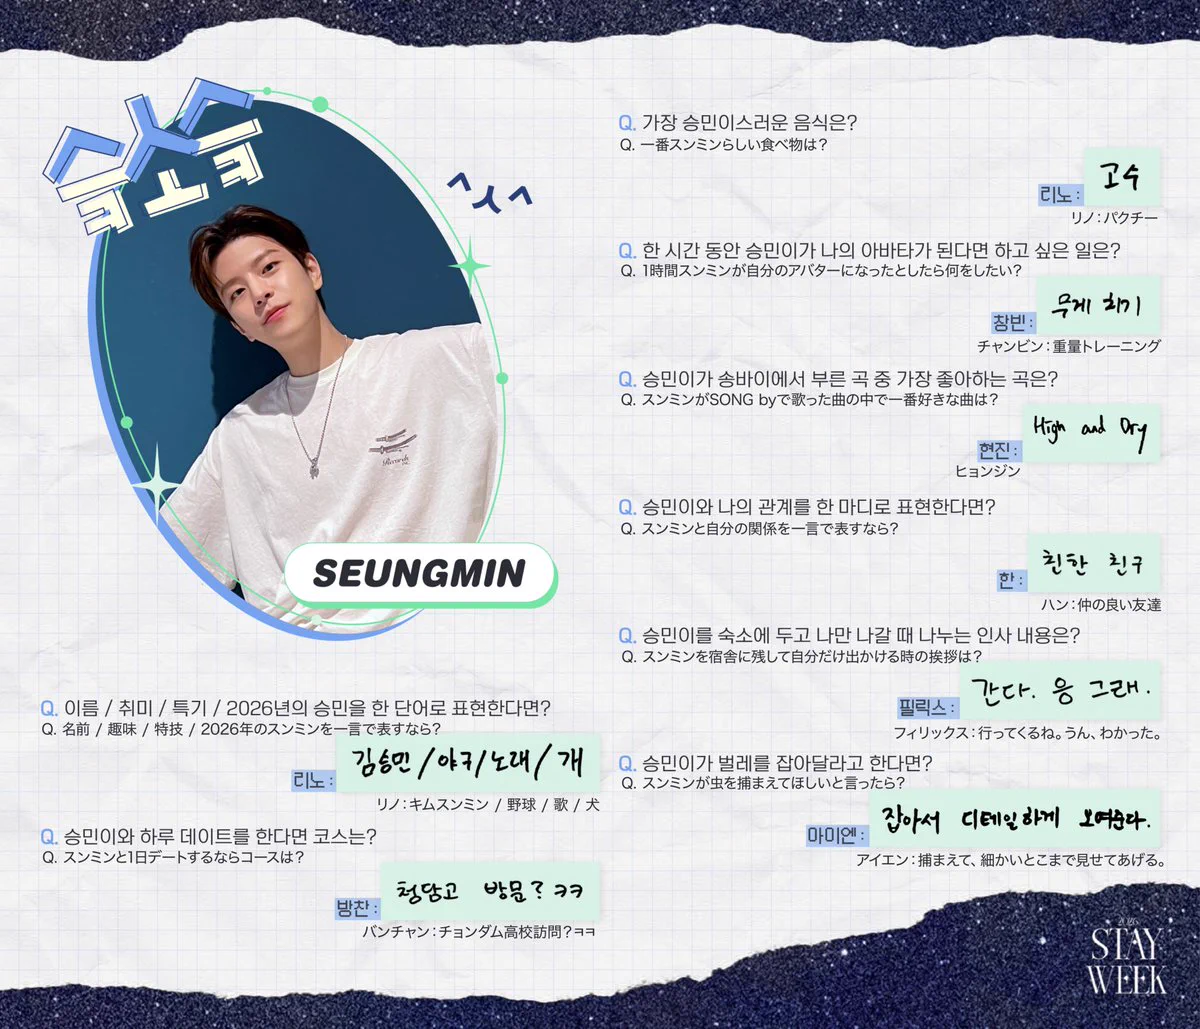 SEUNGMIN
Q. 이름 / 취미 / 특기 / 2026년의 승민을 한 단어로 표현한다면?
Q. 名前 / 趣味 / 特技 / 2026年のスンミンを一言で表すなら?
리노 : 김승민/야구/노래/개
リノ : キムスンミン / 野球 / 歌 / 犬
Q. 승민이와 하루 데이트를 한다면 코스는?
Q. スンミンと1日デートするならコースは?
방찬 : 청담고 방문? ㅋㅋ
バンチャン : チョンダム高校訪問?ㅋㅋ
Q. 가장 승민이스러운 음식은?
Q. 一番スンミンらしい食べ物は?
리노 : 고수
リノ : パクチー
Q. 한 시간 동안 승민이가 나의 아바타가 된다면 하고 싶은 일은?
Q. 1時間スンミンが自分のアバターになったとしたら何をしたい?
창빈 : 무게 치기
チャンビン : 重量トレーニング
Q. 승민이가 송바이에서 부른 곡 중 가장 좋아하는 곡은?
Q. スンミンがSONG byで歌った曲の中で一番好きな曲は?
현진 : High and Dry
ヒョンジン
Q. 승민이와 나의 관계를 한 마디로 표현한다면?
Q. スンミンと自分の関係を一言で表すなら?
한 : 친한 친구
ハン : 仲の良い友達
Q. 승민이를 숙소에 두고 나만 나갈 때 나누는 인사 내용은?
Q. スンミンを宿舎に残して自分だけ出かける時の挨拶は?
필릭스 : 간다. 응 그래.
フィリックス : 行ってくるね。うん、わかった。
Q. 승민이가 벌레를 잡아달라고 한다면?
Q. スンミンが虫を捕まえてほしいと言ったら?
아이엔 : 잡아서 디테일하게 보여준다.
アイエン : 捕まえて、細かいとこまで見せてあげる。
2026
STAY
WEEK